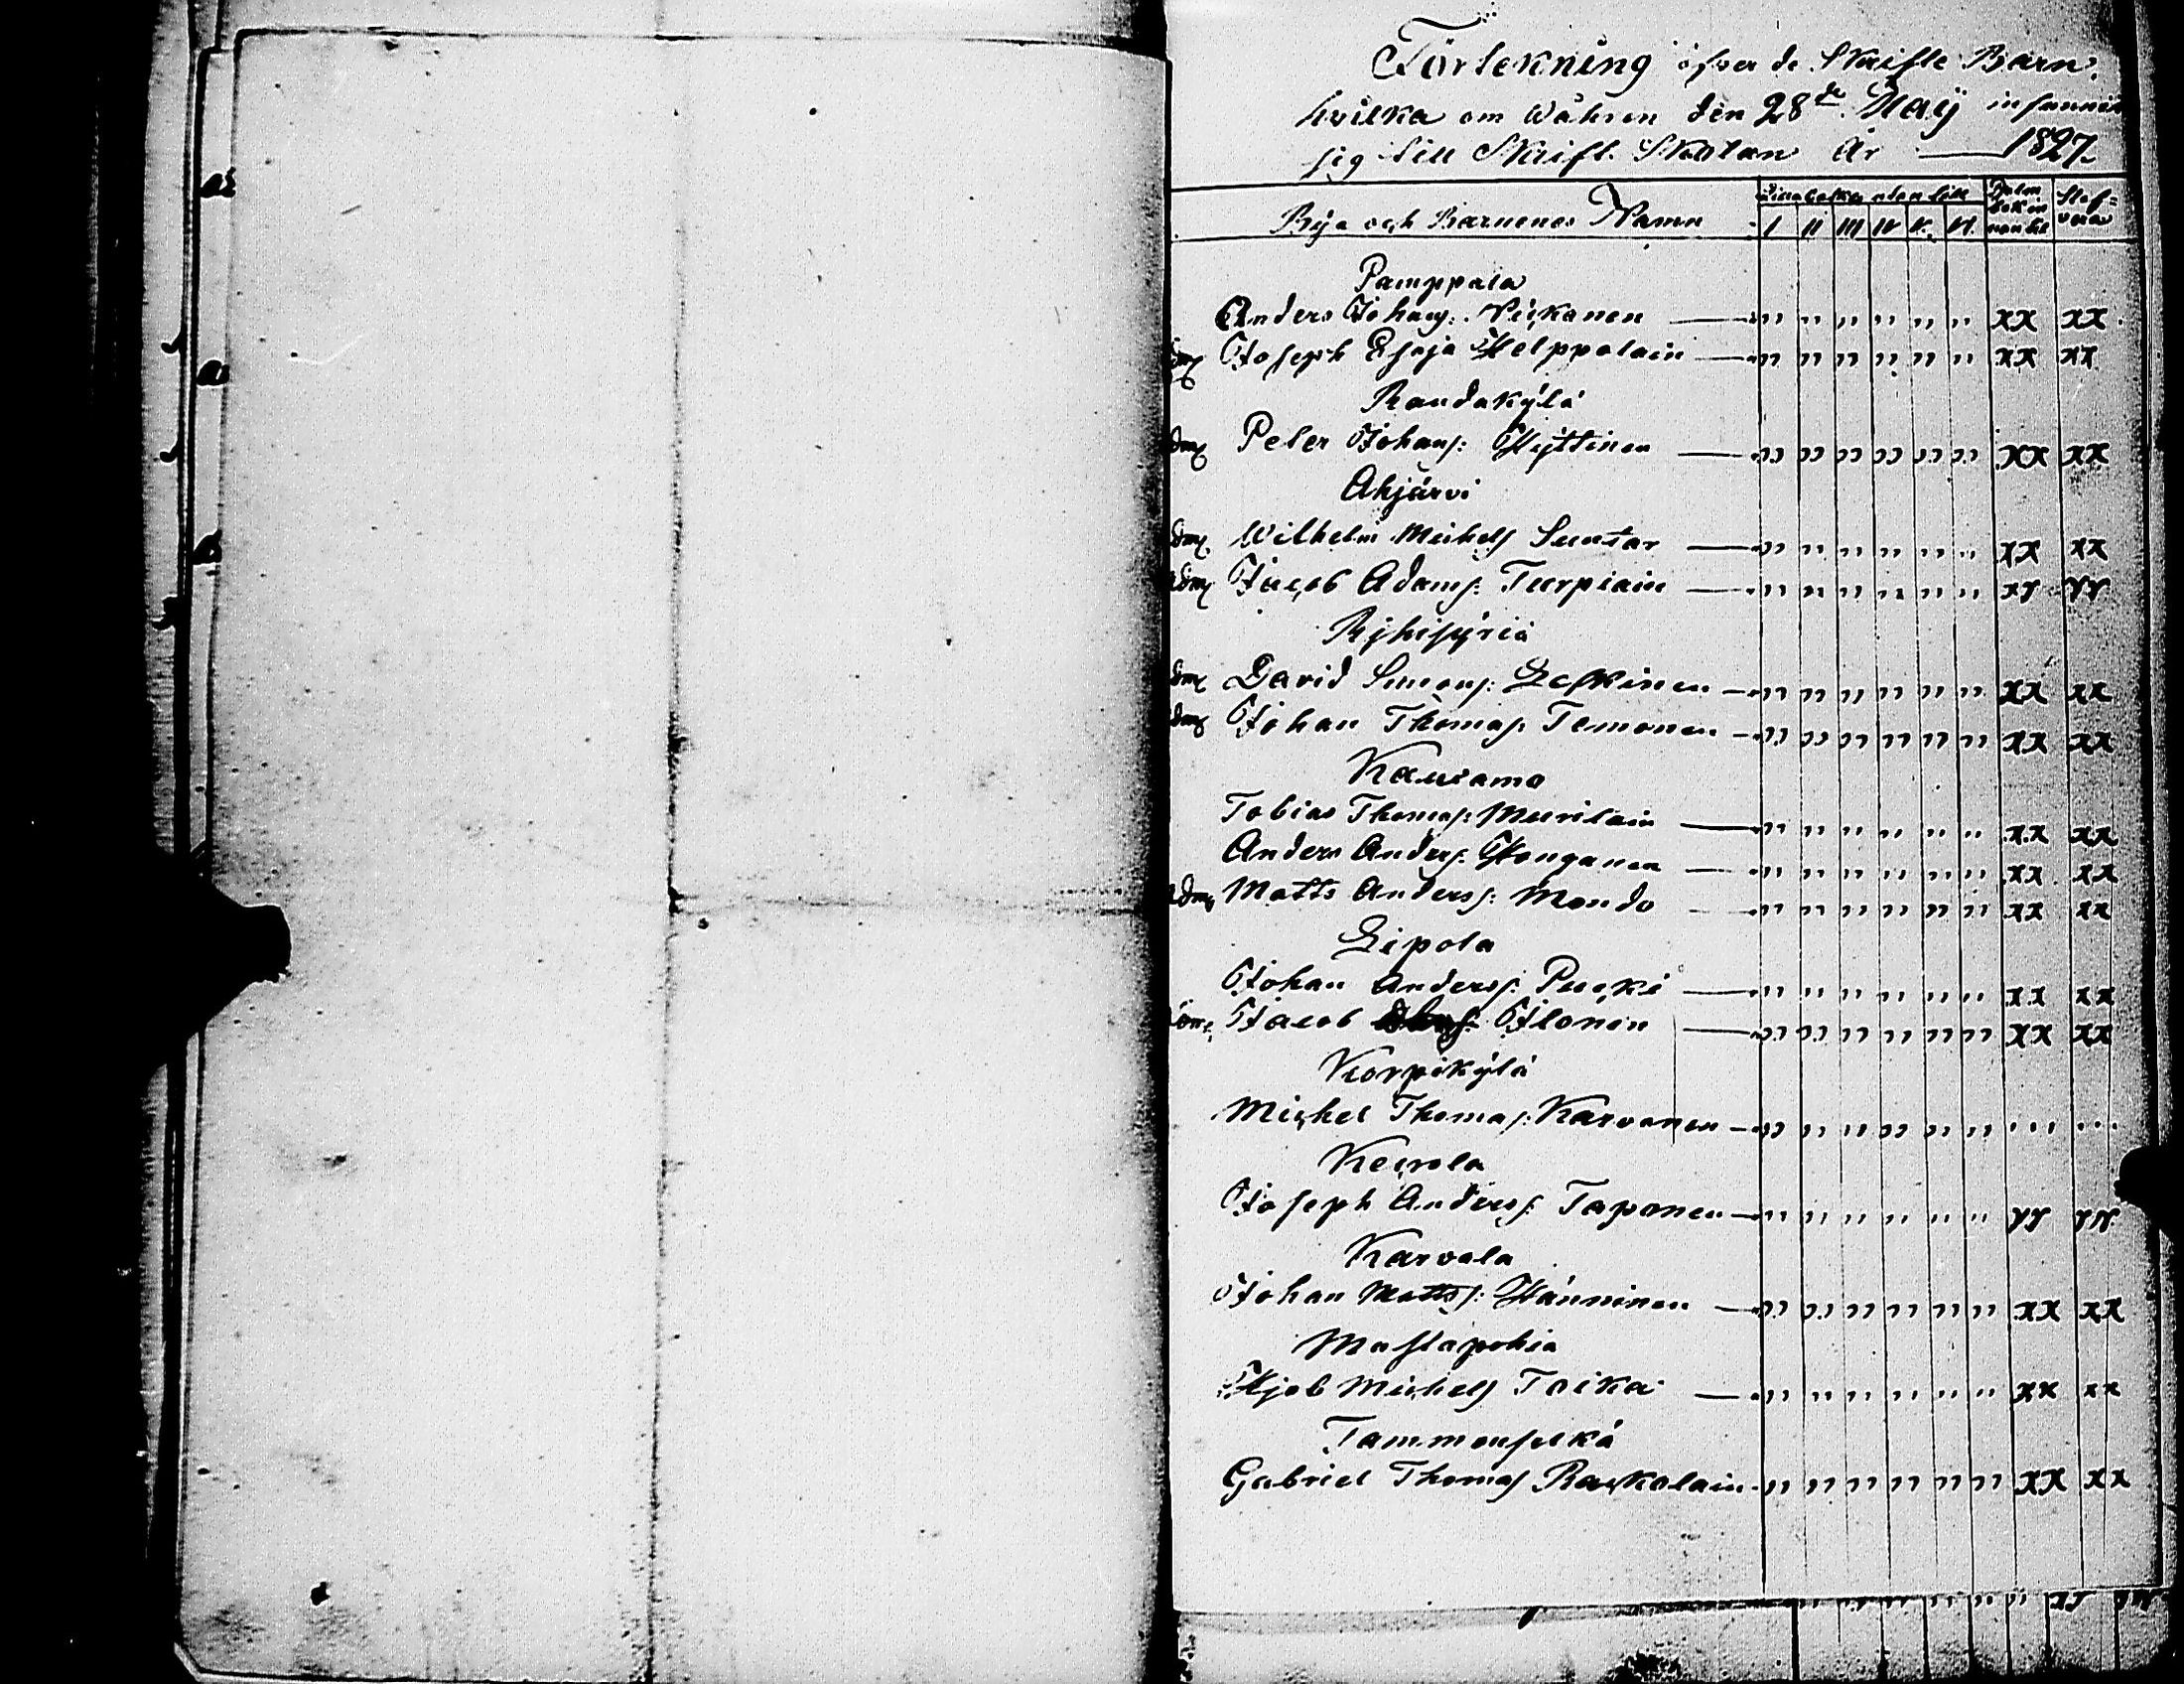 Förtekning öfver de Skrifte Barn,
hvilka om Wåhren den 28de Maÿ infunnit
sig till Skrift Skolan År — 1827
Bya och Barnenes Namn I II III IV V. VI. Psalm bok in nan til Staf= vera
Pamppala
Anders Johansf: Pickanen — " " " " " " xx xx
Joseph Esaja Helppolain — " " " " " " xx xx
Raudakÿlä
adm Peter Johansf: Hyttinen — " " " " " " xx xx
Ahjärvi
adm Wilhelm Michelsf Suutar — " " " " " " xx xx
adm Jacob Adamsf: Turpiain — " " " " " " xx xx
Rjhisÿriä
adm David Simonsf: Leskinen — " " " " " " xx xx
adm Johan Thomasf: Temonen — " " " " " " xx xx
Kausamo
Tobias Thomasf: Muurilain — " " " " " " xx xx
Anders Andersf: Honganen — " " " " " " xx xx
adm Matts Andersf: Mondo — " " " " " " xx xx
Lipola
Johan Andersf: Pucki — " " " " " " xx xx
Jacob Ilonen — " " " " " " xx xx
Korpikÿlä
Michel Thomasf: Karvonen — " " " " " " ... ...
Keurola
Joseph Andersf: Taponen — " " " " " " xx xx
Karvala
Johan Mattsf: Hänninen — " " " " " " xx xx
Mastapohia
Hjob Michelsf Toika — " " " " " " xx xx
Tammenselkä
Gabriel Thomasf Raskolain " " " " " " xx xx